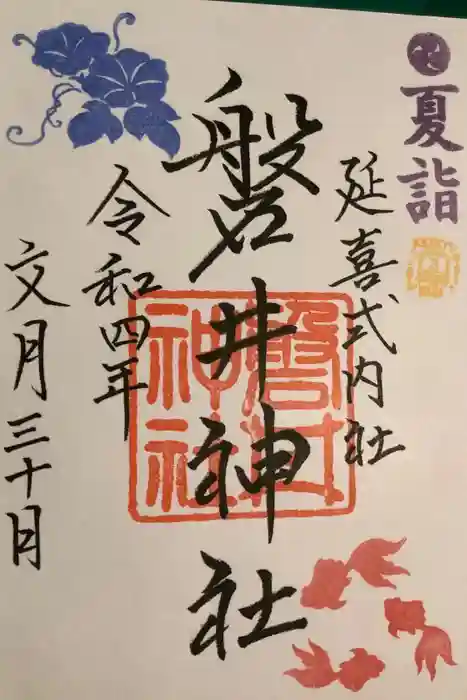 夏詣
延喜式内社
磐井神社
令和四年
文月三十日
磐井神社